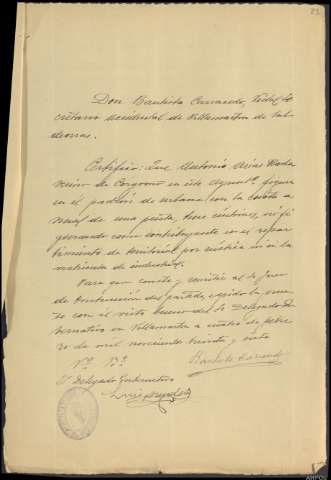 Don Bautista Carracedo, Fidel, Se
cretario accidental de Villamartin de Val-
deorras.
Certifico: Que Antonio Arias Roda
vecino de Corgomo en este Ayuntº, figura
en el padrón de urbana con la cuota a
nual de una peseta, tres céntimos, no fi
gurando como contribuyente en el repar
timiento de territorial por rústica ni en la
matrícula de industrial.
Para que conste y remitir al Sr Juez
de Instrucción del partido, expido la prese
te con el visto bueno del Sr Delegado G
bernativo en Villamartin a cuatro de febre
ro de mil novecientos treinta y siete
Vº Bº
El Delegado Gubernativo